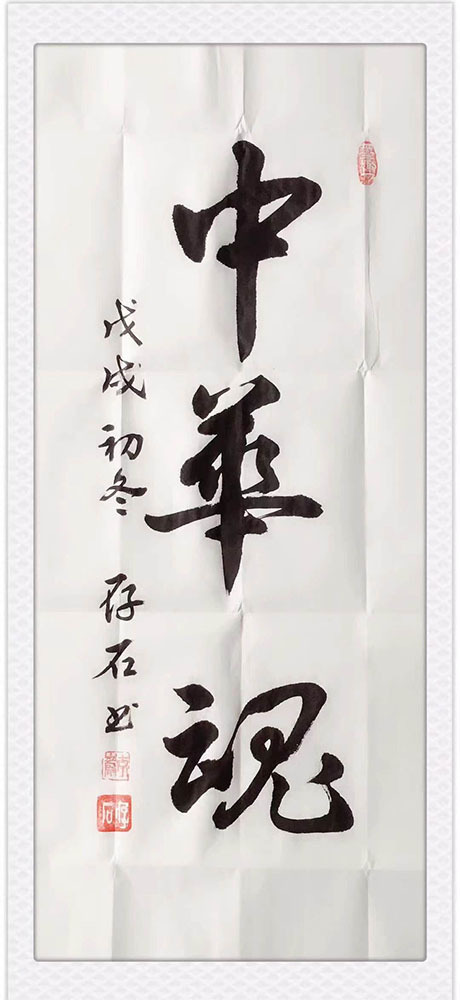 中華魂
戊戌初冬 存石书
存石